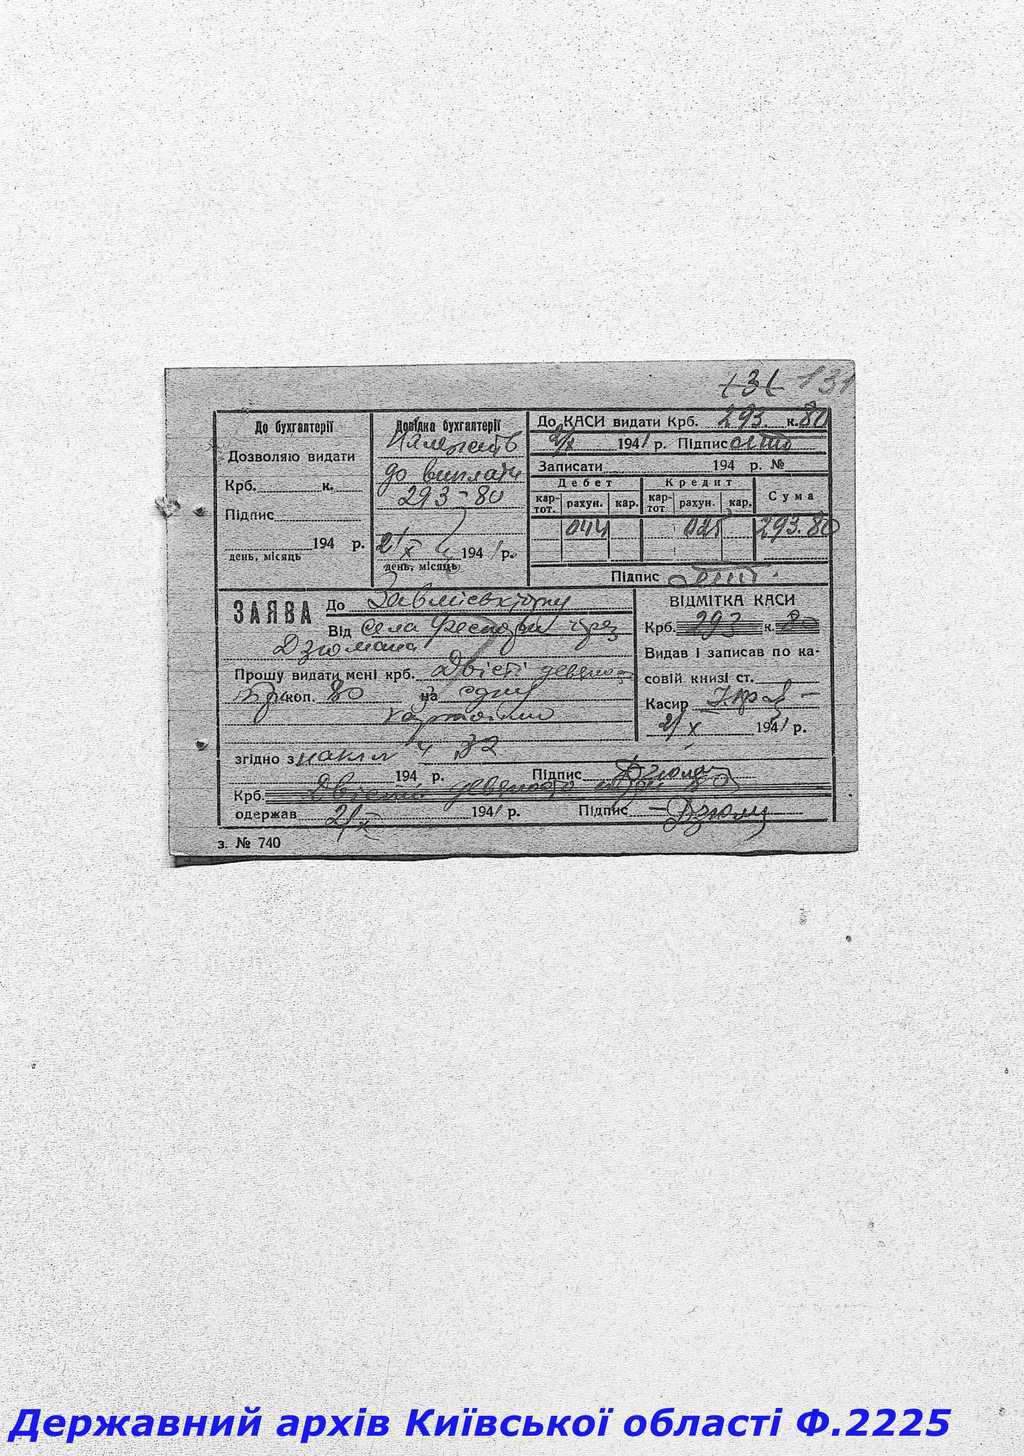 131 131
До бухгалтерії
Дозволяю видати
Крб. к.
Підпис
194 р.
день, місяць
Довідка бухгалтерії
до виплати
293-80
21/X 1941 р.
день, місяць
До КАСИ видати Крб. 293 к. 80
21/X 1941 р. Підпис
Записати 194 р. №
Дебет Кредит Сума
кар-тот. рахун. кар. кар-тот рахун. кар.
044 025 293.80
Підпис
ЗАЯВА До
Від села через
Дзюмана
Прошу видати мені крб. Двісті девяносто
три коп. 80 на одну
згідно з накл 32
194 р. Підпис
Крб. Двісті девяносто три 80
одержав 21/X 1941 р. Підпис
ВІДМІТКА КАСИ
Крб. 293 к. 80
Видав і записав по ка-
совій книзі ст.
Касир
21/X 1941 р.
з. № 740
Державний архів Київської області Ф.2225